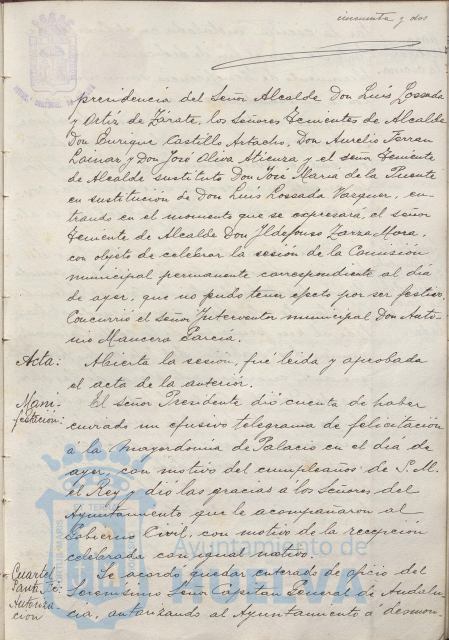 cincuenta y dos
presidencia del Señor Alcalde Don Luis Lossada
y Ortiz de Zárate, los señores Tenientes de Alcalde
Don Enrique Castillo Artacho, Don Aurelio Ferran
Lainar y Don José Oliva Atienza y el señor Teniente
de Alcalde sustituto Don José María de la Puente
en sustitución de Don Luis Lossada Vazquez, en-
trando en el momento que se expresará el señor
Teniente de Alcalde Don Ildefonso Zarza Mora,
con objeto de celebrar la sesión de la Comisión
municipal permanente correspondiente al dia
de ayer, que no pudo tener efecto por ser festivo.
Concurrió el señor Interventor municipal Don Anto-
nio Mancera García.
Acta: Abierta la sesión, fué leida y aprobada
el acta de la anterior.
Mani-
festación: El señor Presidente dió cuenta de haber
cursado un efusivo telegrama de felicitación
á la Mayordomía de Palacio en el día de
ayer, con motivo del cumpleaños de S. M.
el Rey y dió las gracias á los Señores del
Ayuntamiento que le acompañaron al
Gobierno Civil, con motivo de la recepción
celebrada con igual motivo.
Cuartel Se acordó quedar enterado de oficio del
Autoriza-
ción Serenísimo Señor Capitan General de Andalu-
cía, autorizando al Ayuntamiento á desmon-
Ayuntamiento de